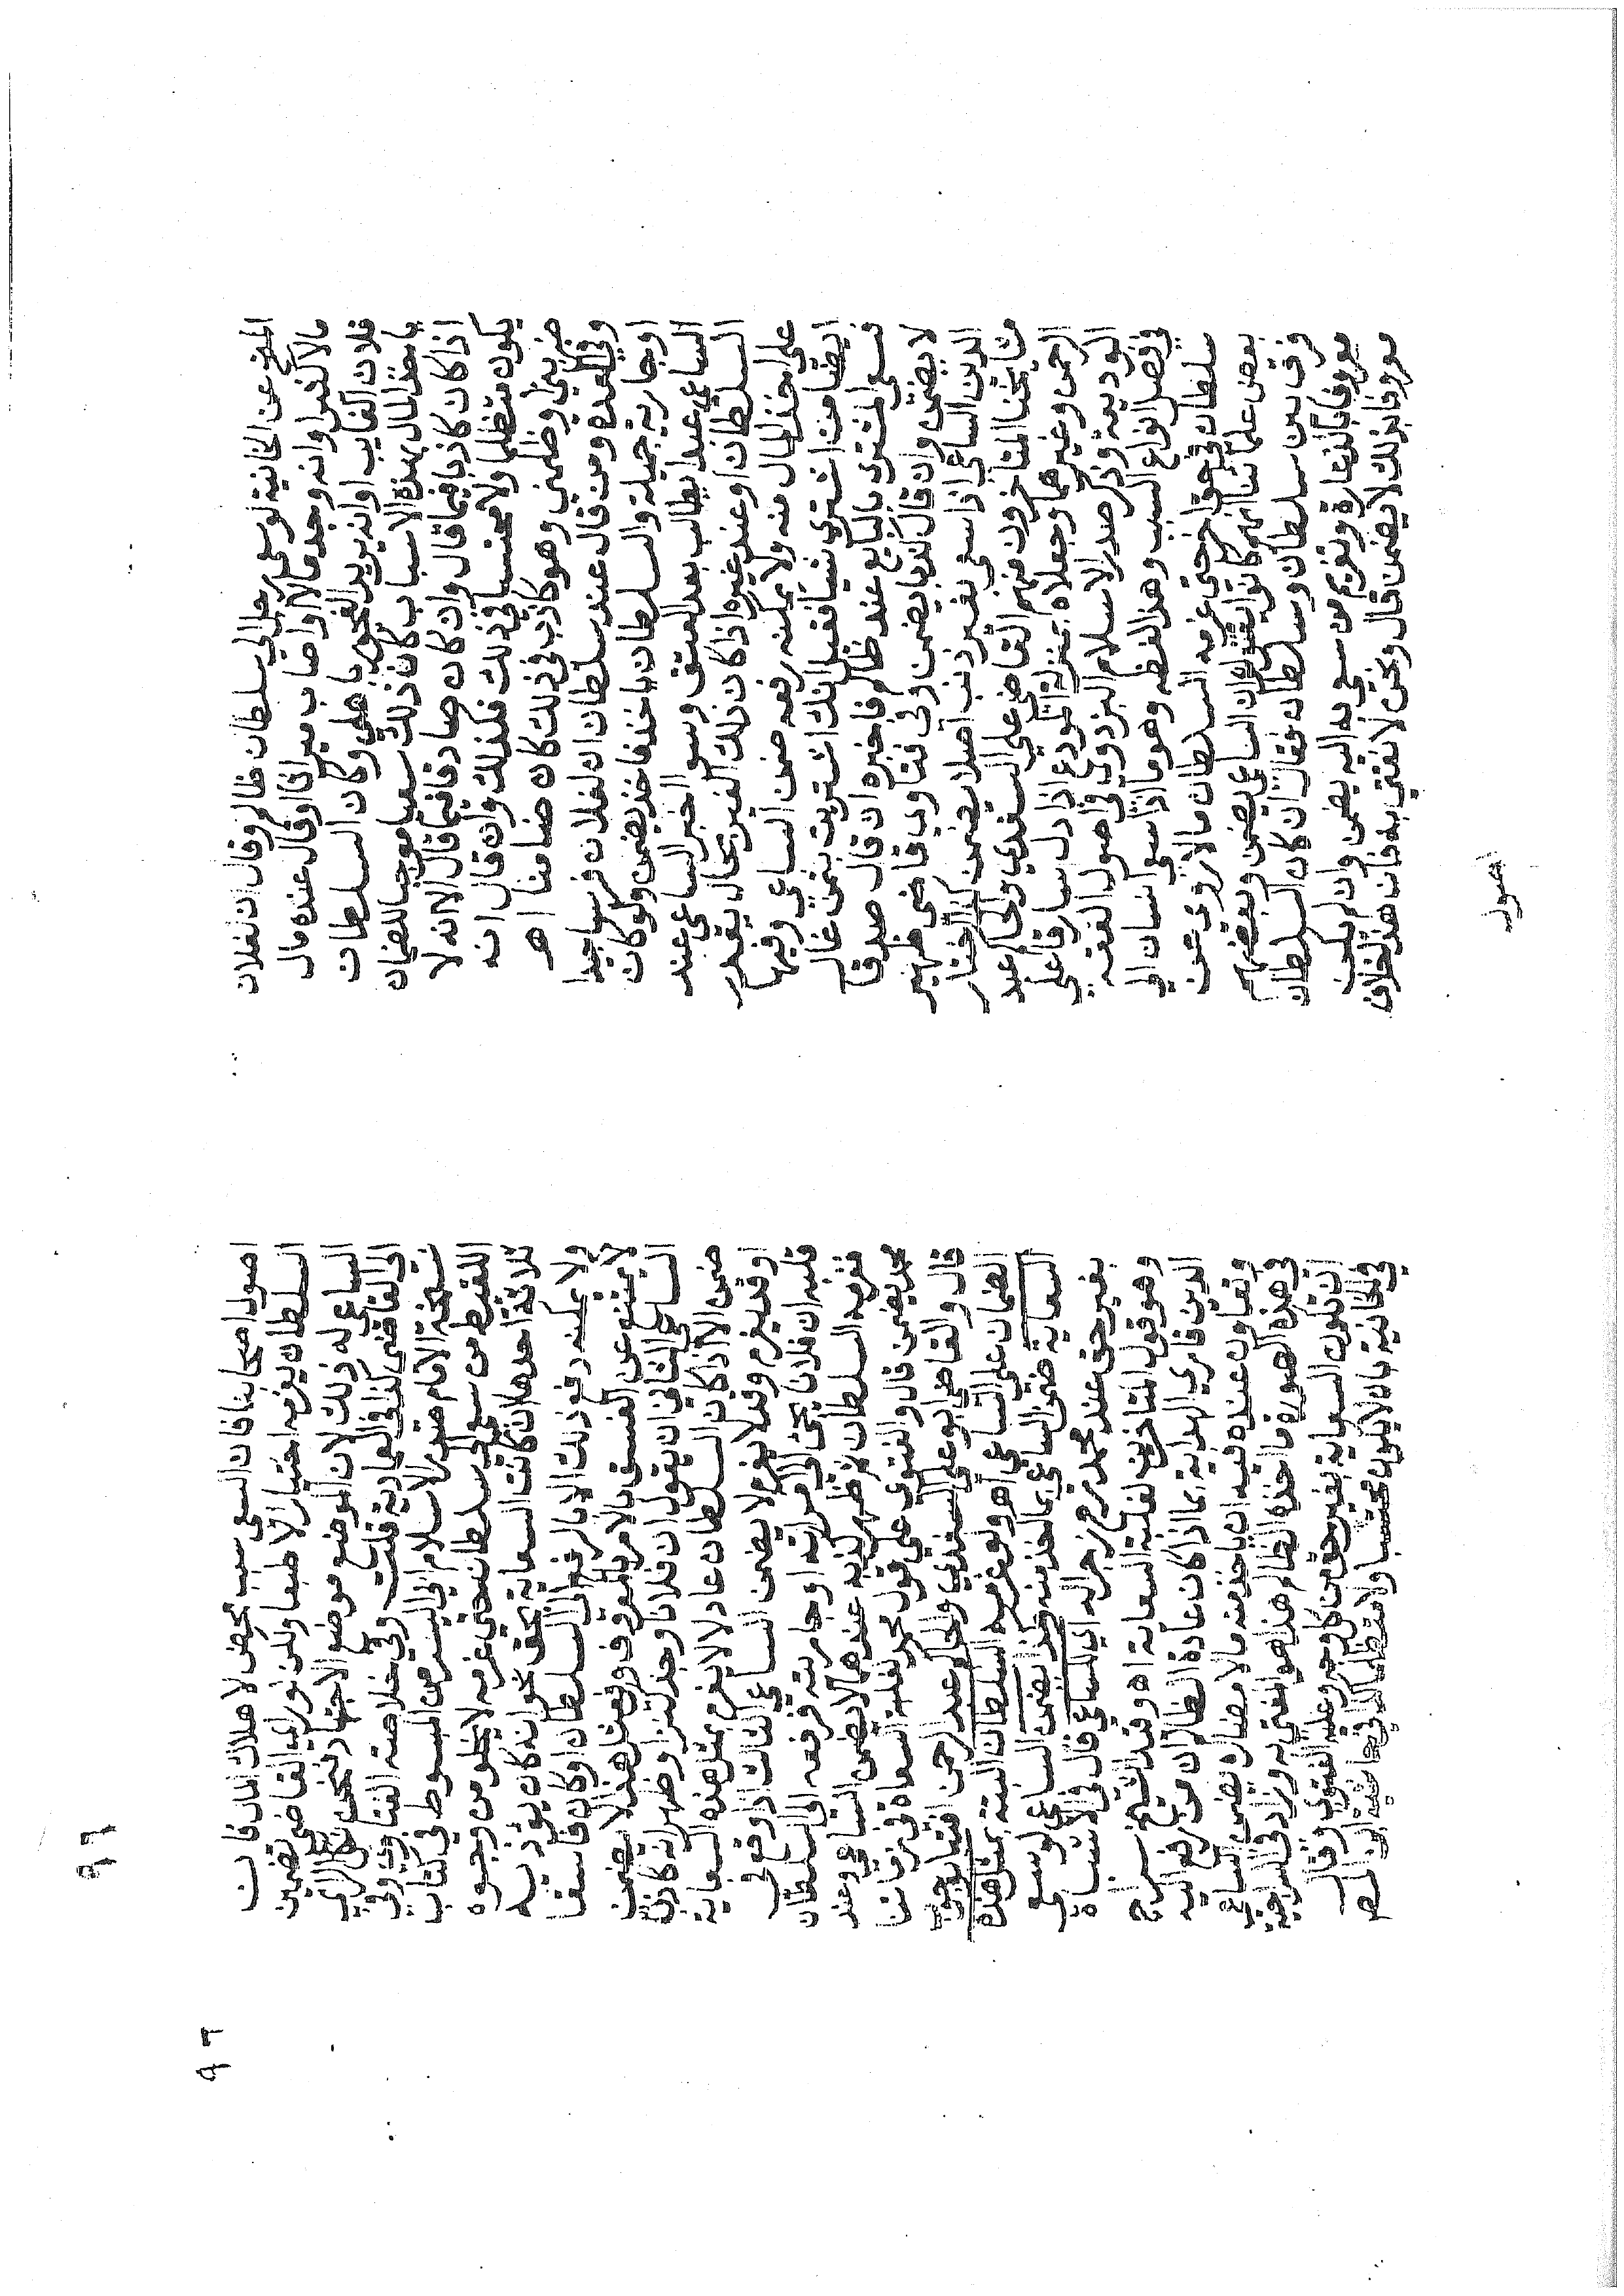 المنح عن الخانية لو سعى رجل الي سلطان ظالم وقال ان لفلان
مالا كثيرا وانه وجد مالا او اصاب ميراثا او قال عنده مال
فلان الغايب او انه يريد الفجور باهلي وكان السلطان
ياخذ المال بهذه الاسباب كان ذلك سعيا موجبا للضمان
اذا كان كاذبا فيما قال وان كان صادقا فيما قال الا انه لا
يكون متظلما ولا محتسبا في ذلك فكذلك وان قال انه
ضربني او ظلمني وهو كاذب في ذلك كان ضامنا اهـ
وفي العدة ومن قال عند سلطان ان لفلان فرسا جيدا
او جارية جميلة والسلطان ياخذ فاخذ يضمن ولو كان
الساعي عبدا يطالب بعد العتق وسو الخبر الساعي عند
السلطان او عند غيره اذا كان ذلك الغير بحال يقدر
على اخذ المال منه ولا يمكنه رفعه ضمن الساعي وفيها
ايضا من اشترى شيا فقيل انك اشتريت بثمن غال
فسعى المشتري بالبايع عند ظالم فاخبره ان قال صدقا
لا يضمن وان قال كذبا يضمن وفي فتاوي قاضي ظهير
الدين الساعي اذا سعى بغير ذنب اصلا يضمن كذا اختار
مشايخنا المتاخرون منهم القاضي علي السغدي والحاكم عبد
الرحمن وغيرهما وجعلاه بمنزلة المودع اذا دل سارقا على
الوديعة وذكر صدر الاسلام البزدوي في اصول الفقه
في فصل انواع السبب وهذا لفظه وهو ما اذا سعى انسان الى
سلطان في حق اخر حتى غرمه السلطان مالا روى عن
بعض علمائنا انهم كانوا يفتون ان الساعي يضمن وبعضهم
فرق بين سلطان وسلطان فقال ان كان السلطان
معروفا بالدعارة وتغريم من سعى به اليه يضمن وان لم يكن
معروفا بذلك لا يضمن قال ونحن لا نفتي به فان هذا خلاف
اصول
اصول اصحابنا فان السعي سبب محض لاهلاك المال فان
السلطان يغرمه اختيارا لا طبعا ولكن لو راى القاضي تضمين
الساعي له ذلك لان الموضع موضع الاجتهاد ونحن نكل الراي
الى القاضي كذا في العمادية قلت وفي خلاصة الفتاوى وفي
نسخة الامام خير الاسلام ابي اليسر من المبسوط في كتاب
اللقيط من سعى الى سلطان حتى غرمه لا يخلو من وجوه
ثلاثة احدها ان كانت السعاية بحق نحو انه كان يؤذيه
ولا يمكنه دفع ذلك الا بالرفع الى السلطان او كان فاسقا
لا يمتنع عن الفسق بالامر بالمعروف وفي مثل هذا لا يضمن
الساعي الثاني ان يقول ان فلانا وجد كنزا وظهر انه كاذب
ضمن الا اذا كان السلطان عادلا لا يغرم بمثل هذه السعاية
او قد يغرم وقد لا يغرم لا يضمن الساعي الثالث اذا وقع في
قلبه ان فلانا يجئ الى امراته او جاريته فرفعه الى السلطان
فغرمه السلطان ثم ظهر كذبه عندهما لا يضمن الساعي وعند
محمد يضمن قال والفتوى على قول محمد لغلبة السعاة في زماننا
قال والقاضي ابو علي السغدي والحاكم عبد الرحمن افتيا بوجوب
الضمان على الساعي اهـ ولو غرمه السلطان البتة بمثل هذه
السعاية ضمن الساعي بما اخذ منه وكذا يضمن الساعي لو سعى
بغير حق عند محمد زجرا له اي للساعي قال في الاشباه
وهو قول المتاخرين لغلبة السعاية اهـ وقد افتى الشيخ سراج
الدين قاري الهداية بما اذا كان عادة الظالم ان من رفع اليه
وتعاون عنده فيه ان ياخذ منه مالا مصادرة يضمن الساعي
في هذه الصورة ما اخذه الظالم هذا هو المفتى به وزاد في السراجية
ان تكون السعاية بغير حق من كل وجه وعليه الفتوى وقال
في الخانية بان لا يكون محتسبا ولا متظلما كذا في حاشية ابن المص
٩٦
٩٦